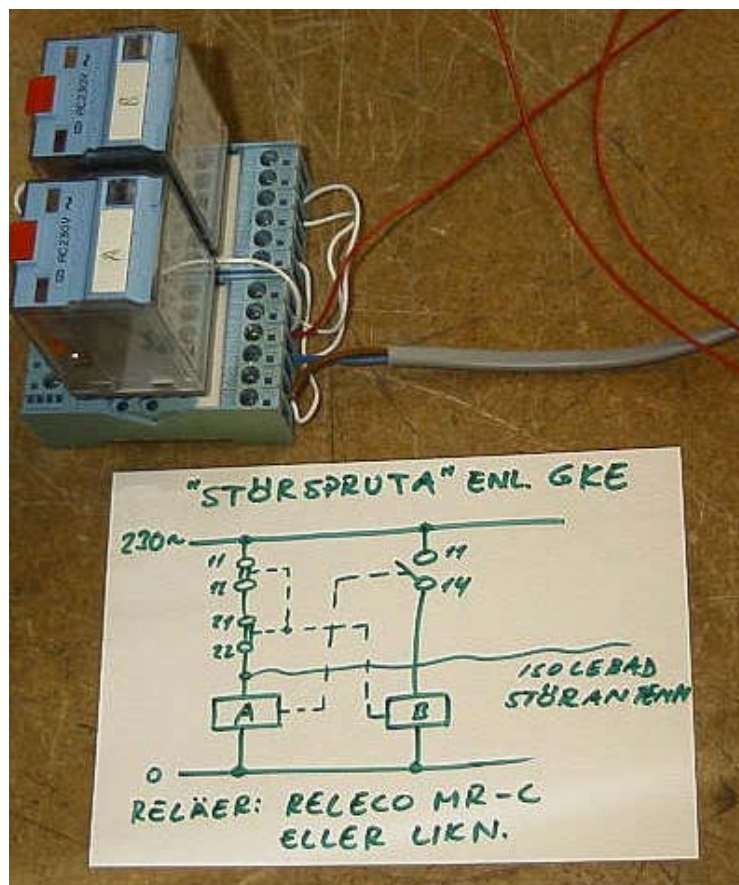 AC 230V ~
B
AC 230V ~
A
"STÖRSPRUTA" ENL. GKE
230~
11
11
12
14
21
22
ISOLERAD
STÖRANTENN
A
B
0
RELÄER: RELECO MR-C
ELLER LIKN.